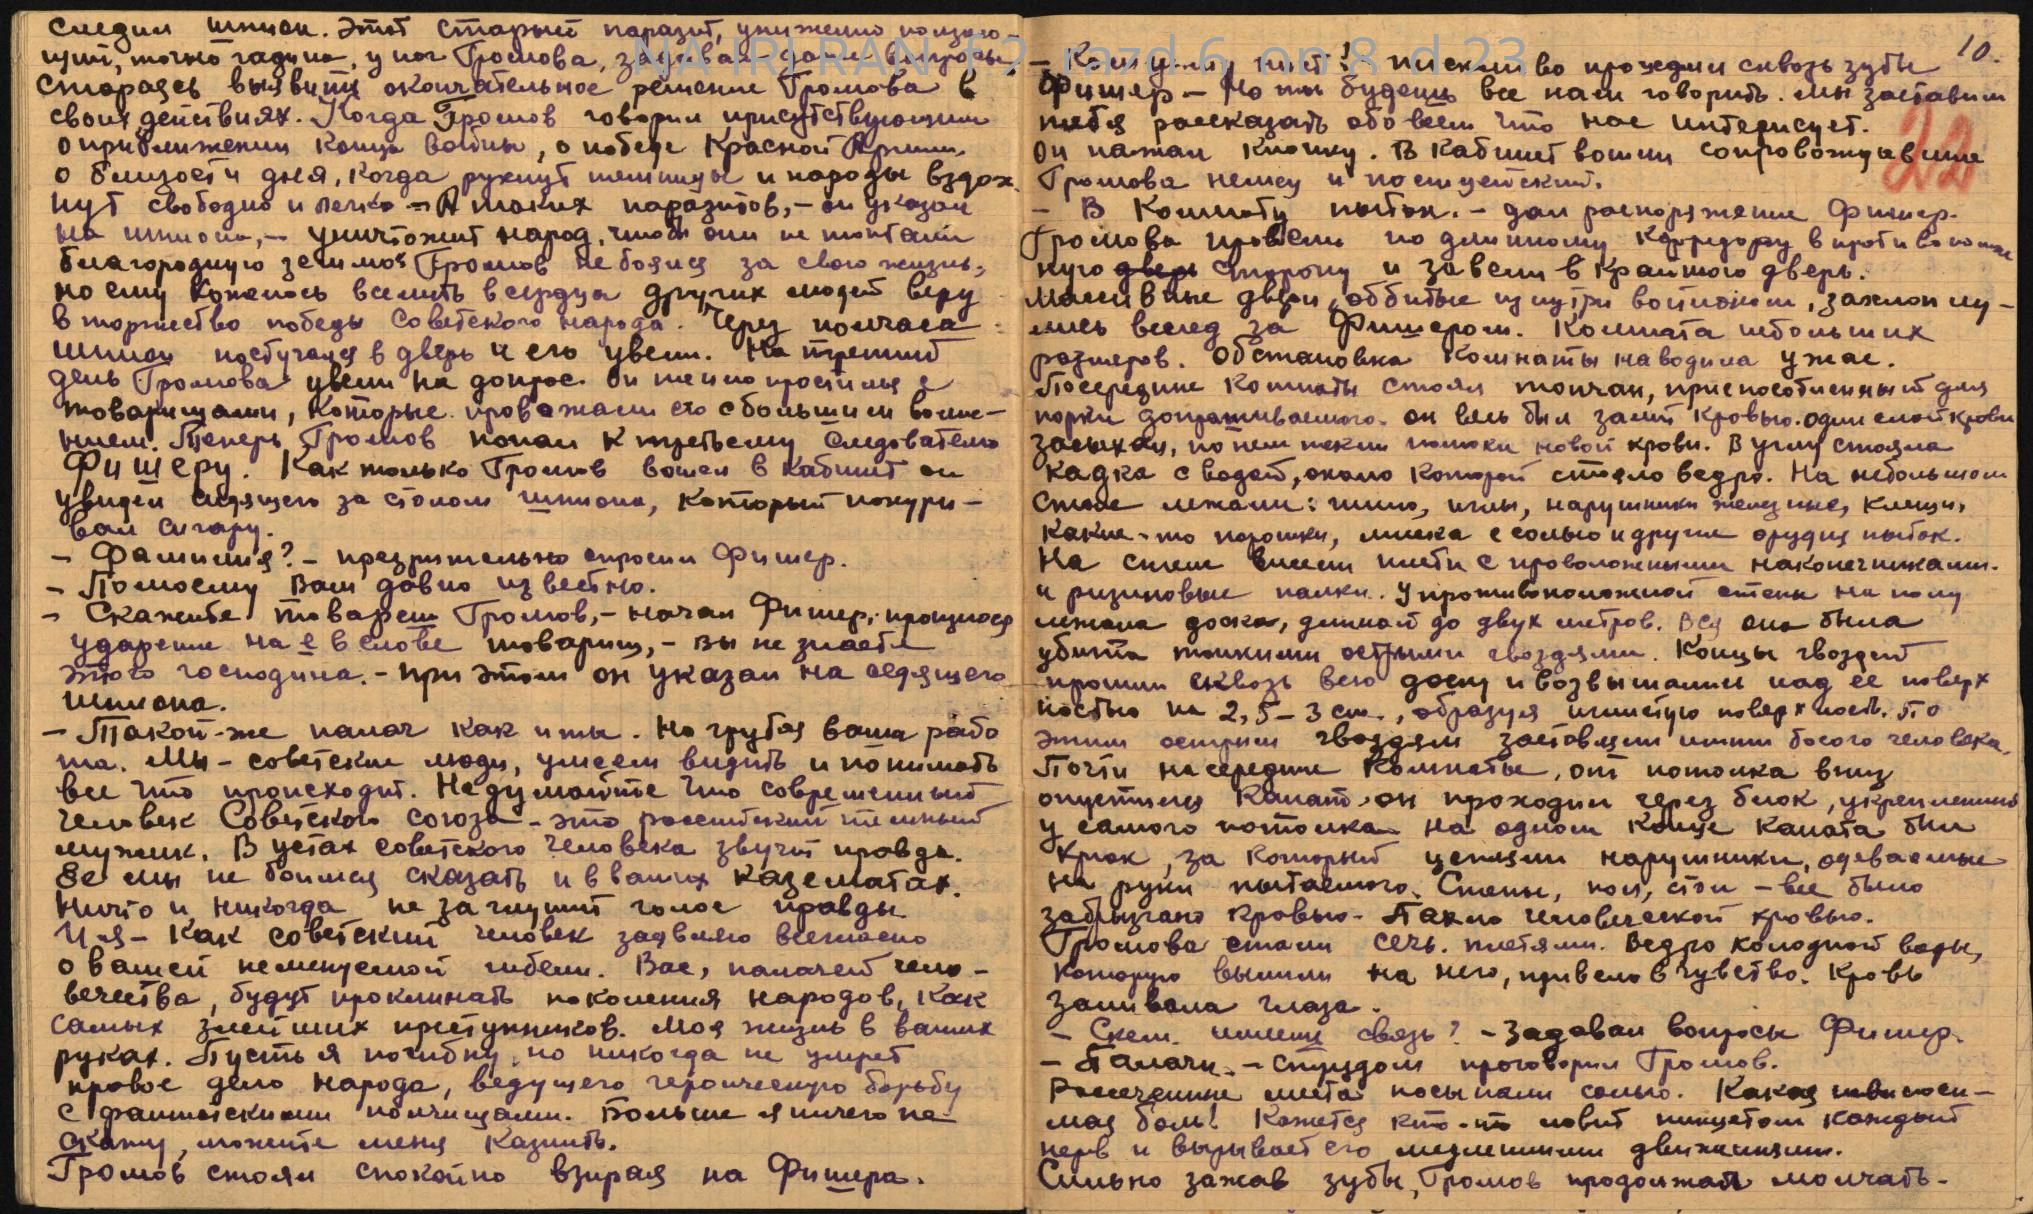 следил шпион. Этот старый паразит, униженно ползаю-
щий, точно гадина, у ног Громова, задавал вопросы,
стараясь выявить окончательное решение Громова в
своих действиях. Когда Громов говорил присутствующим
о приближении конца войны, о победе Красной Армии,
о близости дня, когда рухнут темницы и народы вздох-
нут свободно и легко – А таких паразитов, – он указал
на шпиона, – уничтожит народ, чтобы они не топтали
благородную землю. Громов не боялся за свою жизнь,
но ему хотелось вселить в сердца других людей веру
в торжество победы советского народа. Через полчаса
шпион постучался в дверь и его увели. На третий
день Громова увели на допрос. Он тепло простился с
товарищами, которые провожали его с большим волне-
нием. Теперь Громов попал к третьему следователю
Фишеру. Как только Громов вошел в кабинет он
увидел сидящего за столом шпиона, который покури-
вал сигару.
– Фамилия? – презрительно спросил Фишер.
– Помоему Вам давно известно.
– Скажите товареш Громов, – начал Фишер, произнося
ударение на е в слове товарищ, – вы не знаете
этого господина. – при этом он указал на сидящего
шпиона.
– Такой-же палач как и ты. Но грубая ваша рабо
та. Мы – советские люди, умеем видеть и понимать
все что происходит. Не думайте что современный
человек Советского союза – это российский темный
мужик. В устах советского человека звучит правда.
Ее мы не боимся сказать и в ваших казематах.
Ничто и никогда не заглушит голос правды.
И я – как советский человек заявляю всегласно
о вашей неминуемой гибели. Вас, палачей чело-
вечества, будут проклинать поколения народов, как
самых злейших преступников. Моя жизнь в ваших
руках. Пусть я погибну, но никогда не умрет
правое дело народа, ведущего героическую борьбу
с фашистскими полчищами. Больше я ничего не
скажу, можете меня казнить.
Громов стоял спокойно взирая на Фишера.
NA IRI RAN f.2 razd.6 op.8 d.23
10.
22
– Коммунист! писклво процедил сквозь зубы
Фишер – Но ты будешь все нам говорить. Мы заставим
тебя рассказать обо всем что нас интересует.
Он нажал кнопку. В кабинет вошли сопровождавшие
Громова немец и полицейский.
– В комнату пыток. – дал распоряжение Фишер.
Громова провели по длинному корридору в противополож
ную дверь сторону и завели в крайнюю дверь.
Массивные двери, оббитые изнутри войлоком, захлопну-
лись вслед за Фишером. Комната небольших
размеров. Обстановка комнаты наводила ужас.
Посередине комнаты стоял топчан, приспособленный для
порки допрашиваемого. он весь был залит кровью. один слой крови
засыхал, по нем текли потоки новой крови. В углу стояла
кадка с водой, около которой стояло ведро. На небольшом
столе лежали: шило, иглы, наручники железные, клещи,
какие-то порошки, миска с солью и другие орудия пыток.
На стене висели плети с проволочными наконечниками.
и резиновые палки. У противоположной стены на полу
лежала доска, длиной до двух метров. Вся она была
убита тонкими острыми гвоздями. Концы гвоздей
прошли сквозь всю доску и возвышались над ее поверх
ностью на 2,5 – 3 см., образуя иглистую поверхность. По
этим острым гвоздям заставляли итти босого человека.
Почти на середине комнаты, от потолка вниз
опустился канат. он проходил через блок, укрепленный
у самого потолка. На одном конце каната был
крюк, за который цепляли наручники, одеваемые
на руки пытаемого. Стены, пол, стол – все было
забрызгано кровью. Пахло человеческой кровью.
Громова стали сечь плетями. Ведро холодной воды,
которую вылили на него, привело в чувство. Кровь
заливала глаза.
– С кем имеешь связь? – Задавал вопросы Фишер.
– Палачи. – с трудом проговорил Громов.
Рассеченные места посыпали солью. Какая невыноси-
мая боль! Кажется кто-то ловит пинцетом каждый
нерв и вырывает его медленными движениями.
Сильно зажав зубы, Громов продолжал молчать.